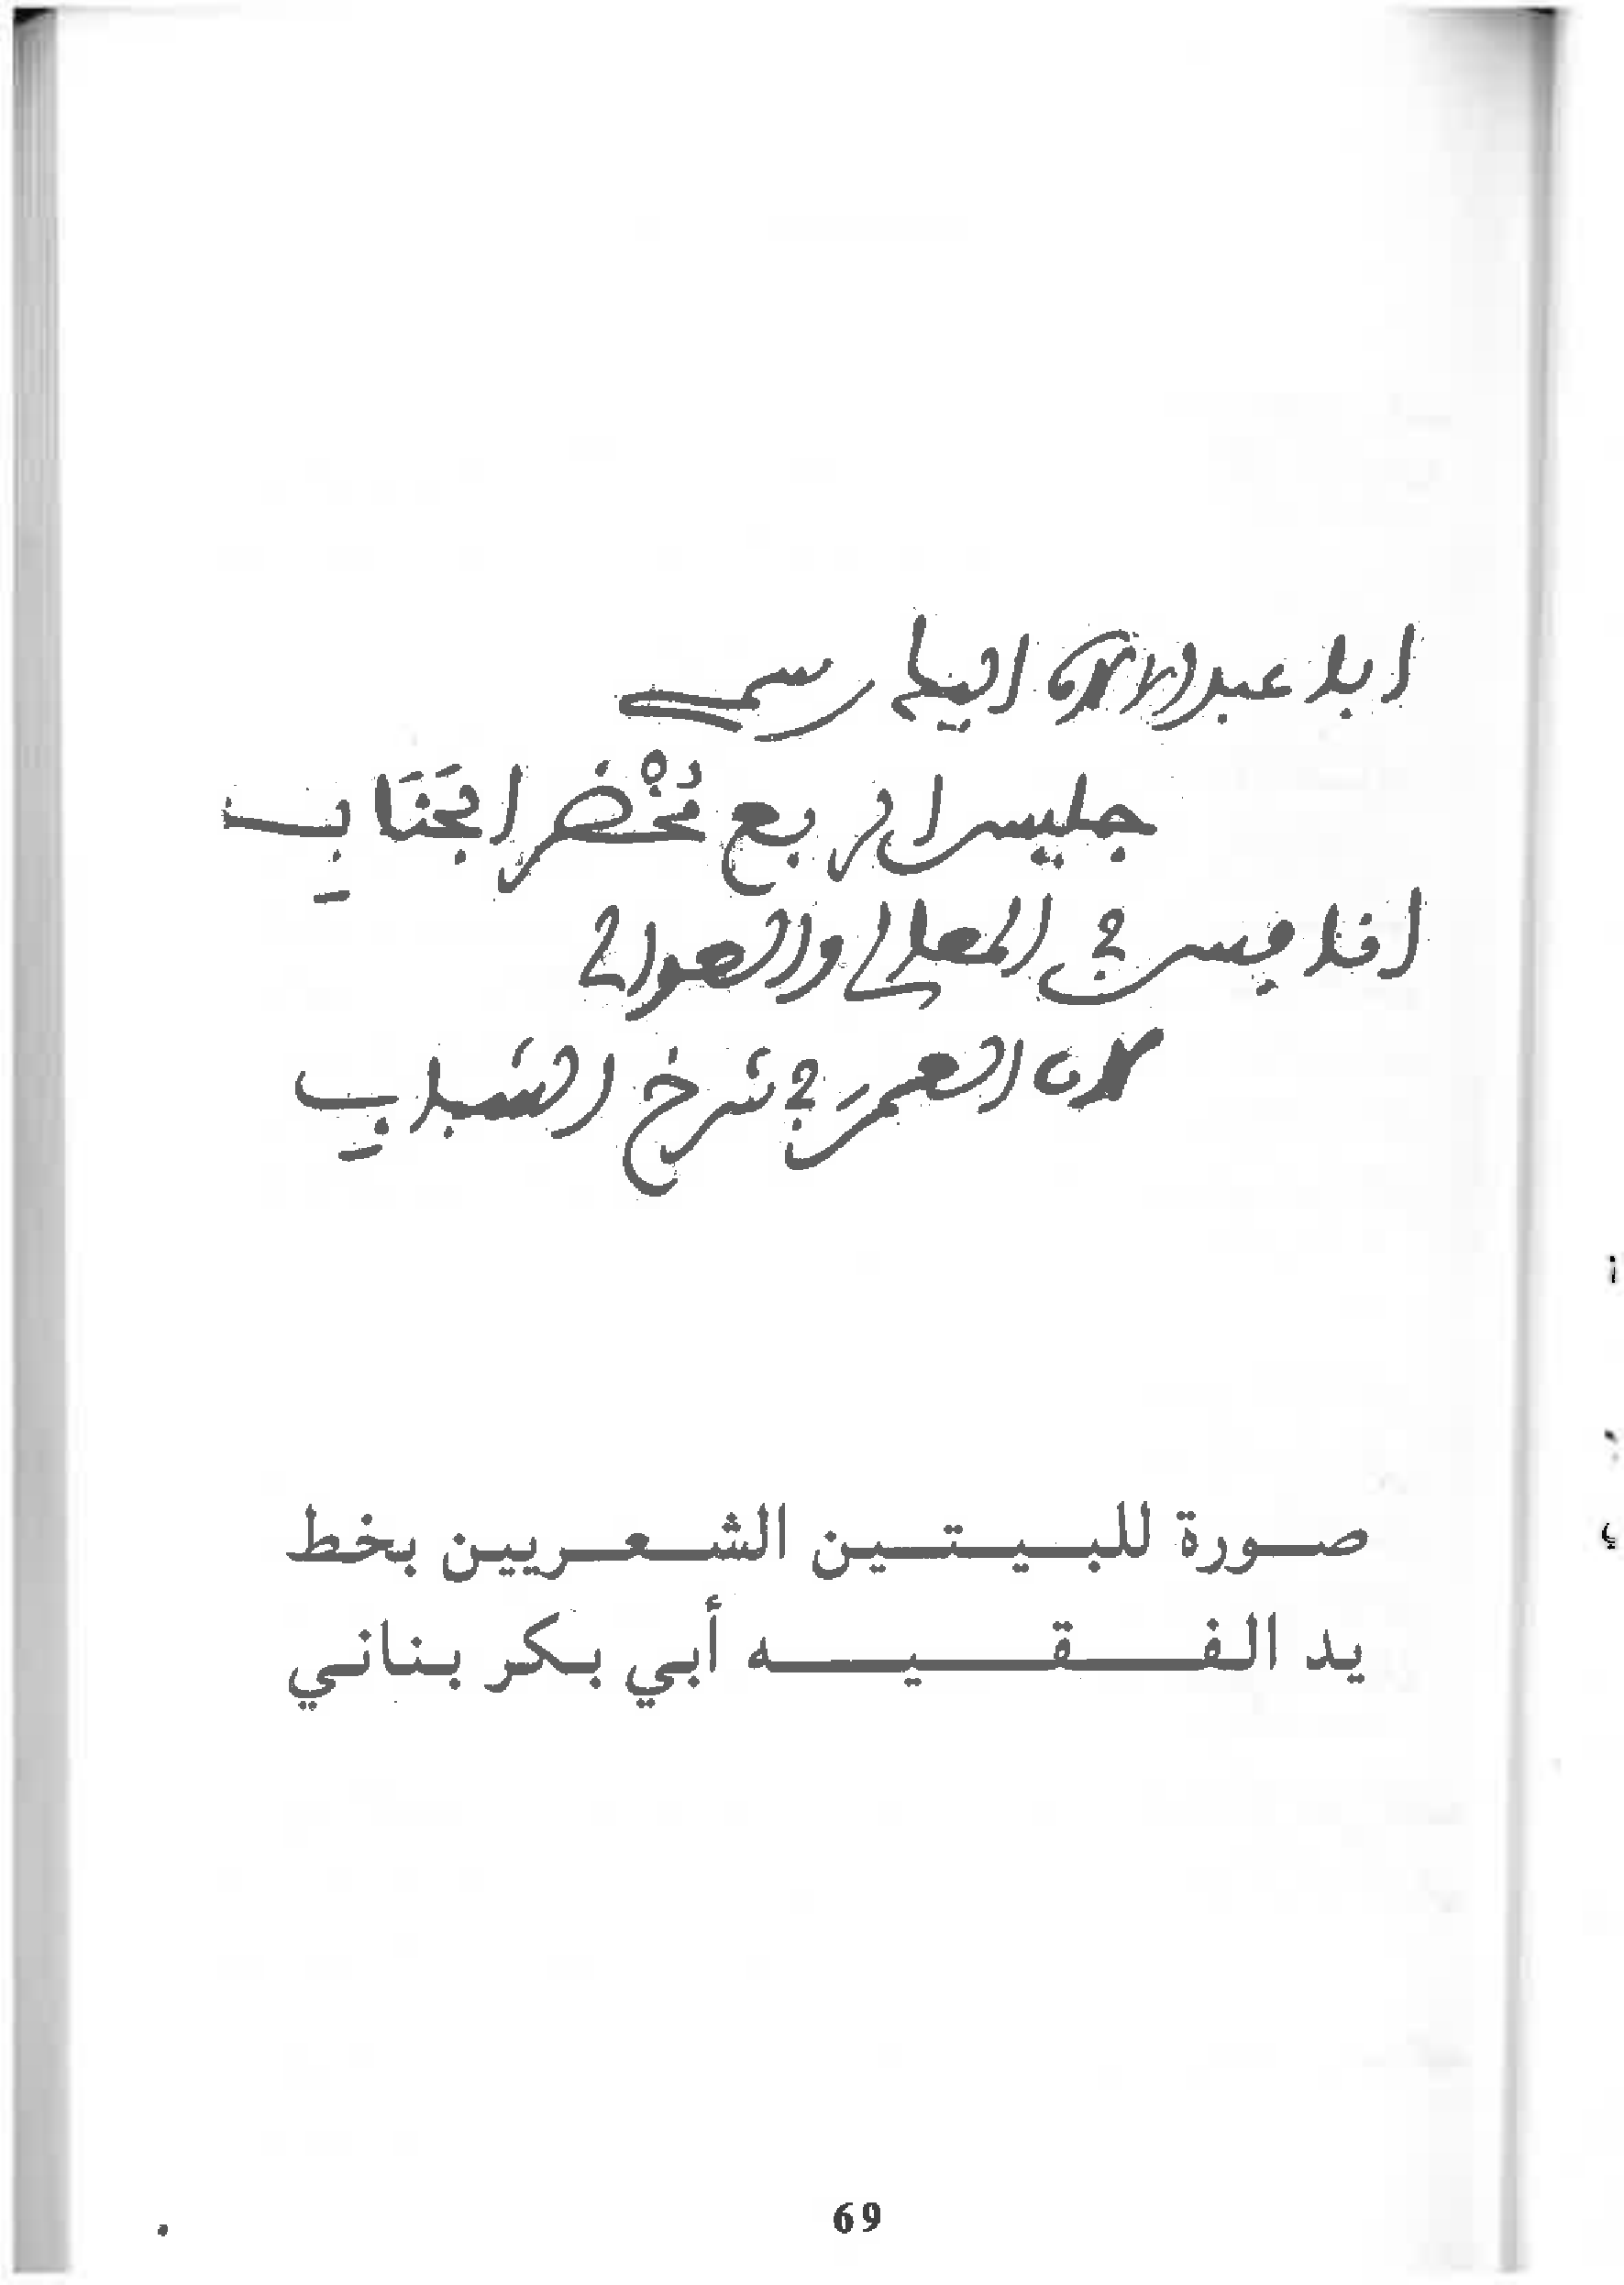 ابا عبد الالاه اليك رسمي
جليس الربع مُخْضر الجَنَاب
انافس في المعالي والعوالي
كان العمر في شرخ الشباب
صورة للبيتين الشعريين بخط
يد الفقيه أبي بكر بناني
69